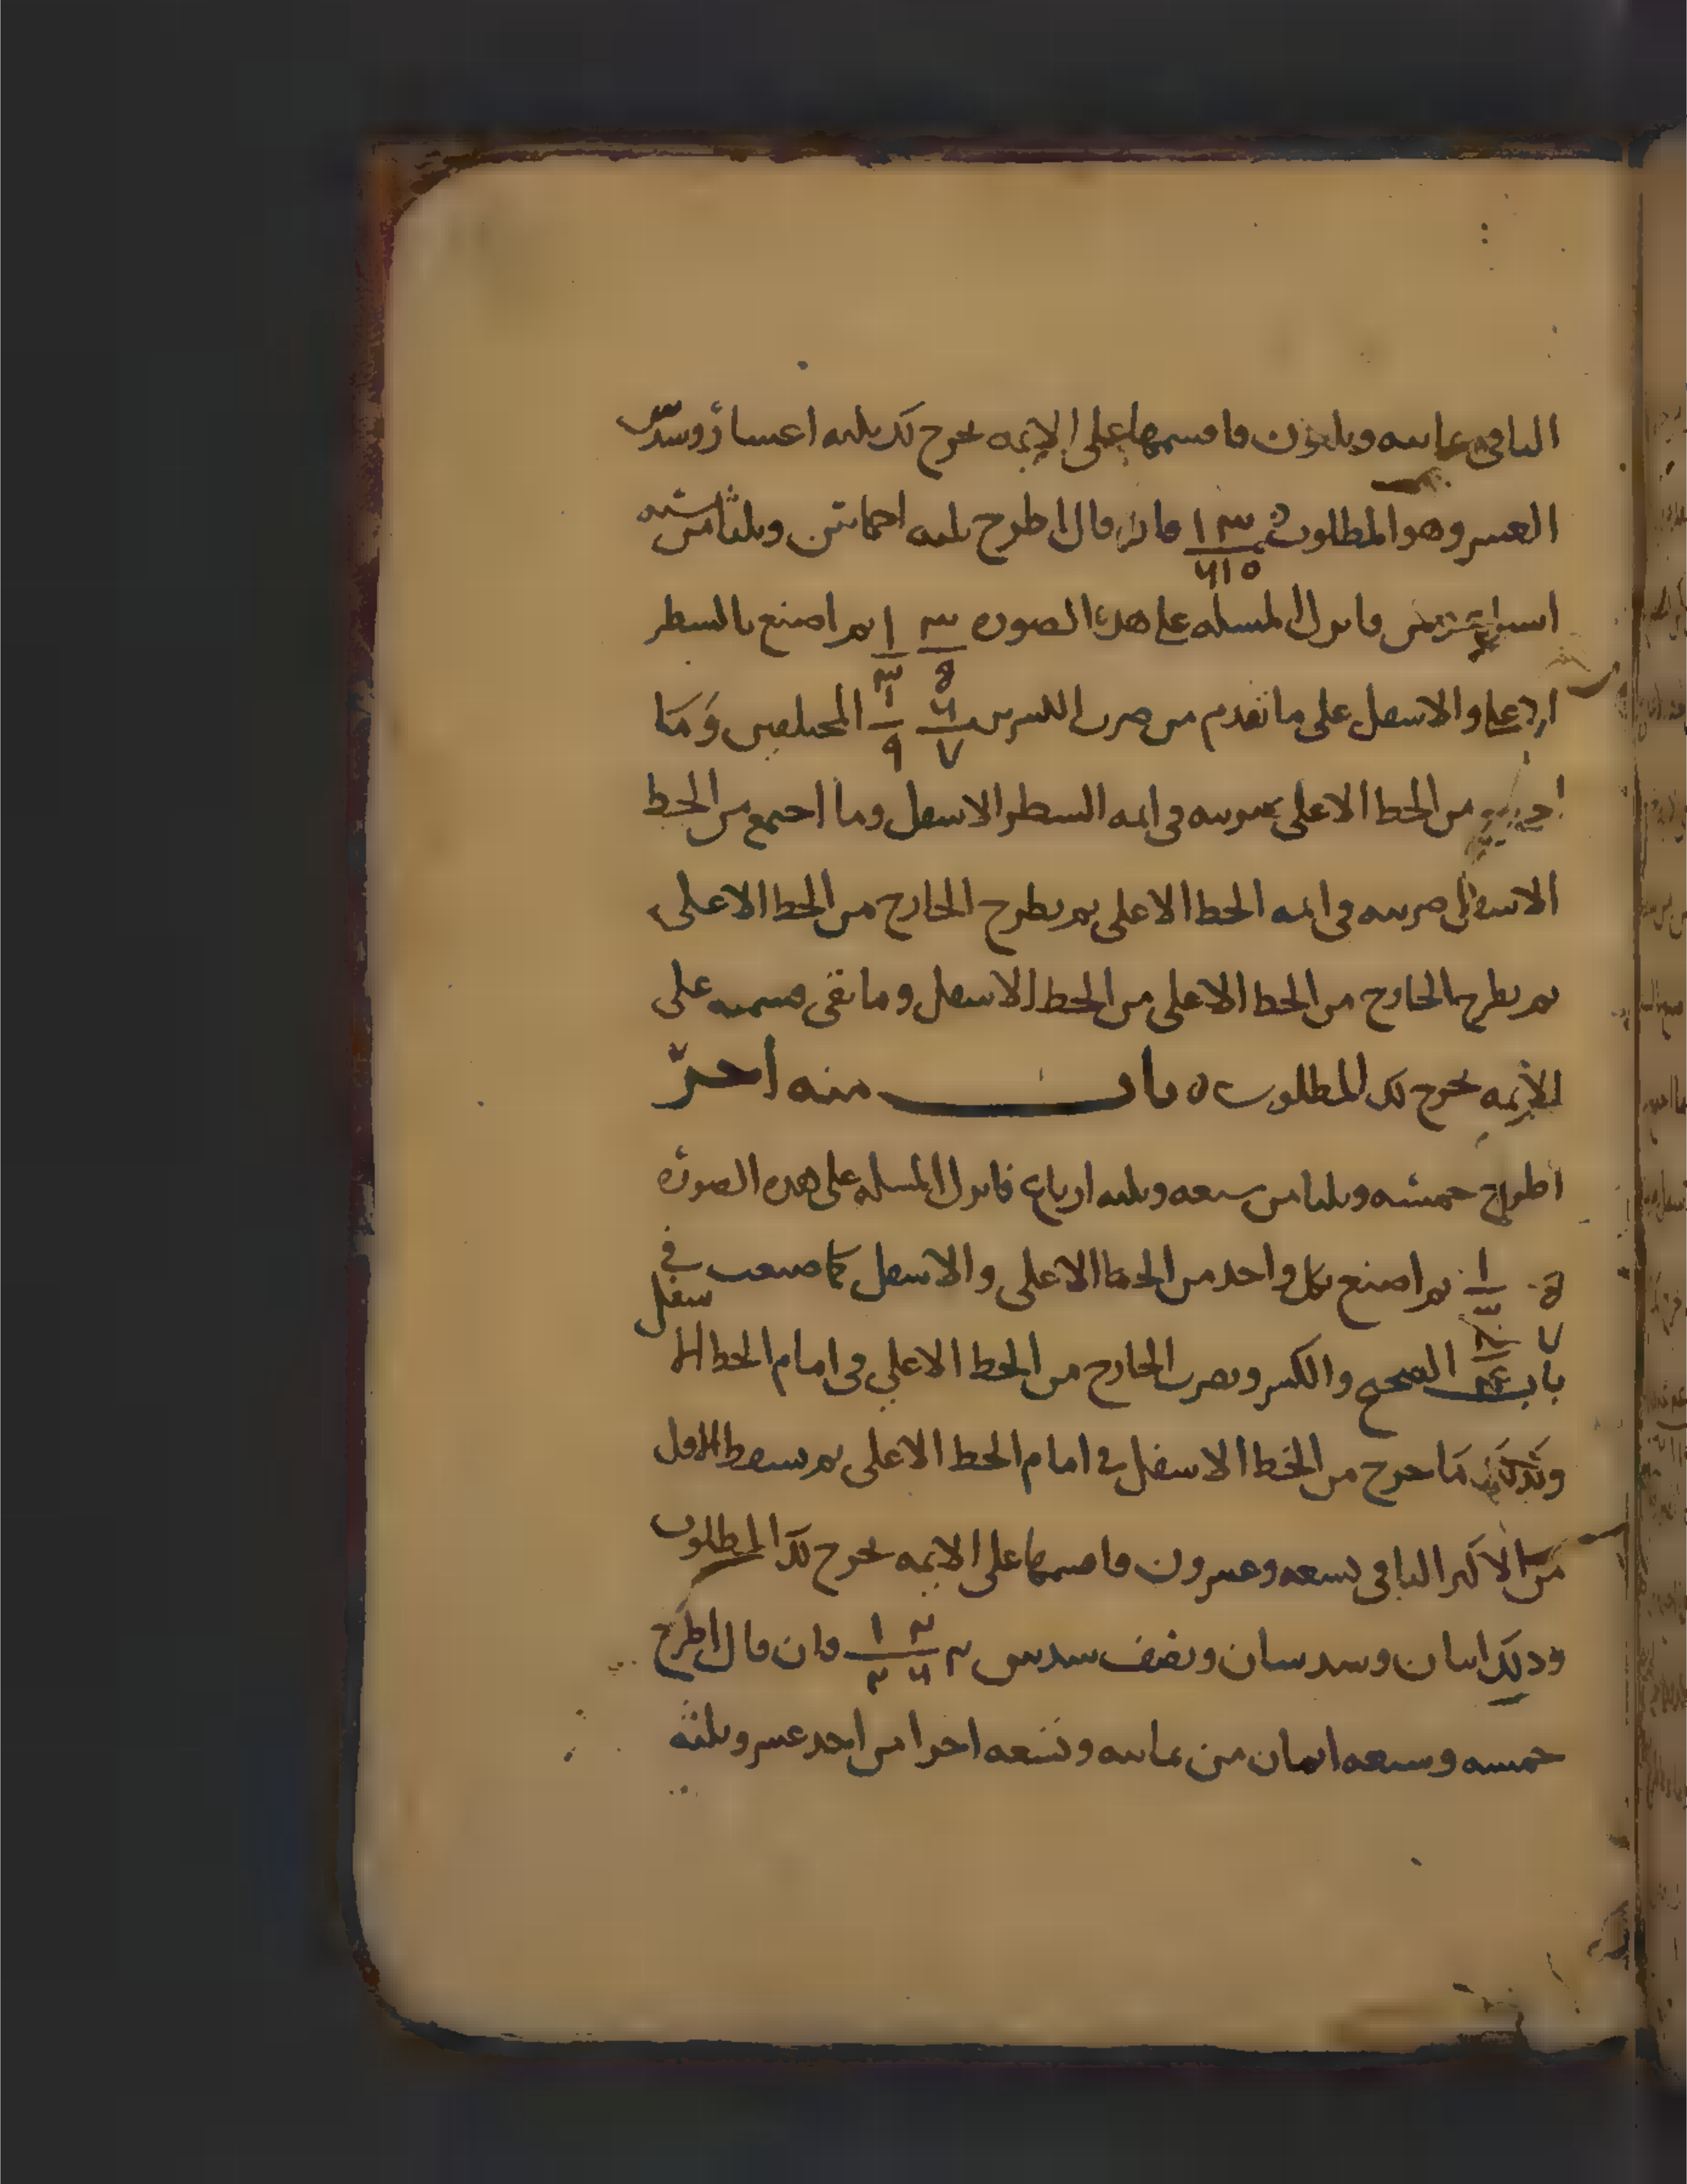 الباقي ثمانيه وثلثون فاقسمها على الايمه يخرج لك ثلثه اعشار وسدس
العشر وهو المطلوب ١٣ / ٦١٠ فان قال اطرح ثلثه اخماس وثلثا من سته
اسباع فانزل المسله على هذه الصوره ٣ ١ ثم اصنع بالسطر
الاعلى والاسفل على ما تقدم من ضرب الكسرين المختلفين وما
من الخط الاعلى ضربته في ايمه السطر الاسفل وما اجتمع من الخط
الاسفل ضربته في ايمه الخط الاعلى ثم تطرح الخارج من الخط الاعلى
ثم تطرح الخارج من الخط الاعلى من الخط الاسفل وما بقي قسمته على
الايمه يخرج لك المطلوب ٥ باب منه اخر
اطرح خمسه وثلثا من سبعه وثلثه ارباع فانزل المسله على هذه الصوره
٥ ١/٣ ثم اصنع بكل واحد من الخط الاعلى والاسفل كما صنعت في
باب الصحيح والكسر وتضرب الخارج من الخط الاعلى في امام الخط الاسفل
وكذلك ما خرج من الخط الاسفل في امام الخط الاعلى ثم تسقط الاقل
من الاكثر الباقي تسعه وعشرون فاقسمها على الايمه يخرج لك المطلوب
وذلك اثنان وسدسان ونصف سدس ٢ ٢ ١ / ٦ ٢ فان قال اطرح
خمسه وسبعه اثمان من ثمانيه وتسعه اجزا من احد عشر وثلثه